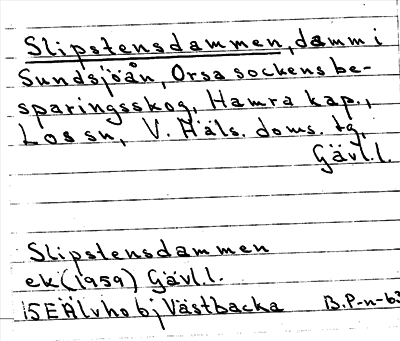 Slipstensdammen, damm i
Sundsjöån, Orsa sockens be-
sparingsskog, Hamra kap.,
Los sn, V. Häls. doms. tg,
Gävl.l.
Slipstensdammen
ek (1959) Gävl.l.
15E Älvho bj Västbacka B.P-n-63